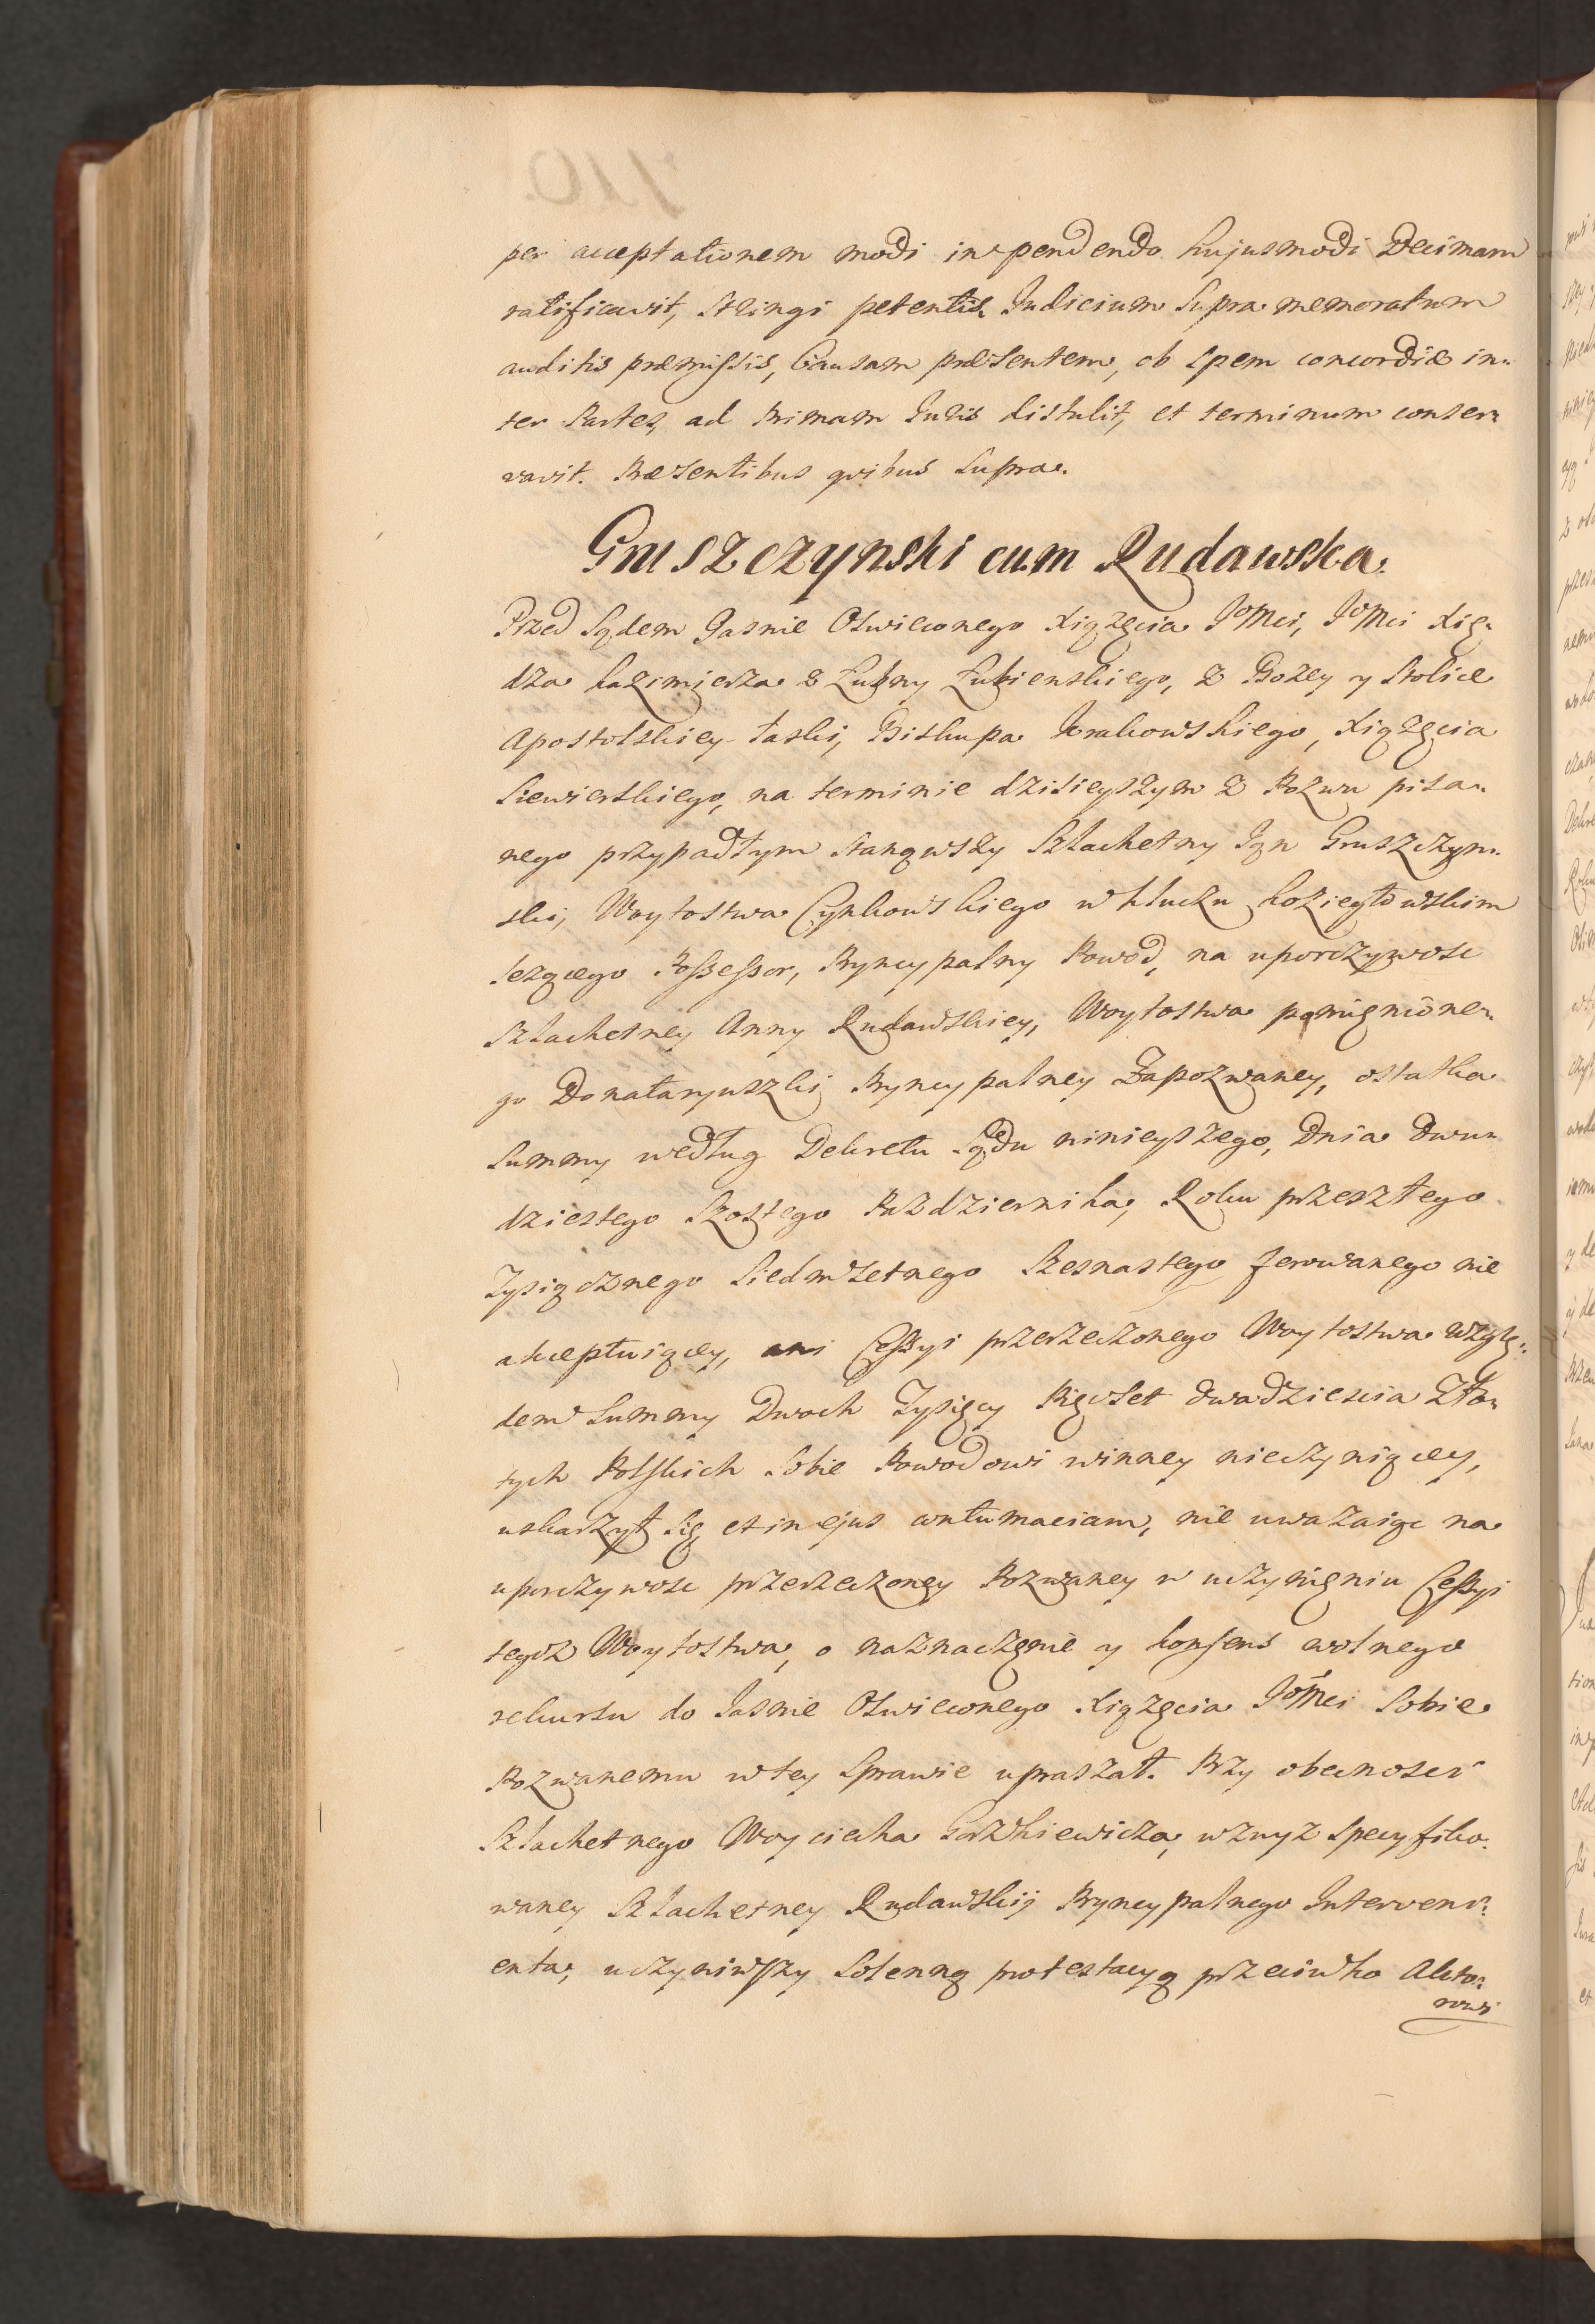 per acceptationem modi in spendendo hujusmodi Decimam
ratificavit, stringi petentis Judicium supra memoratum
auditis præmissis, Causam præsentem, ob spem concordiæ in„
ter Partes, ad Primam Juris distulit, et terminum conser„
vavit. Præsentibus qvibus supra.
Gruszczynski cum Rudawska.
Przed Sądem Jasnie Oswieconego Xiążęcia JoMci, JoMci Xię„
dza Kazimierza z Łubny Łubienskiego, z Bozey y Stolice
Apostolskiey łaski, Biskupa Krakowskiego, Xiążęcia
Siewierskiego, na terminie dzisieyszym z Pozwu pisa„
nego przypadłym stanąwszy Szlachetny Jan Gruszczyn„
ski, Woytostwa Cynkowskiego w kluczu koziegłowskim
lezącego Possessor, Pryncypalny Powod, na uporczywosc
Szlachetney Anny Rudawskiey, Woytostwa pomienione„
go Donataryuszki Pryncypalney Zapozwaney, ostatka
Summy według Dekretu Sądu ninieyszego, Dnia dwu„
dziestego Szostego Pazdziernika, Roku przeszłego
Tysiącznego Siedmsetnego Szesnastego ferowanego nie
akceptuiącey, ani Cessyi przerzeczonego Woytostwa wzglę„
dem Summy Dwoch Tysięcy Pięcset dwadziescia Zło„
tych Polskich Sobie Powodowi winney nieczyniącey,
uskarzył się et in ejus contumaciam, nie uwazaiąc na
uporczywosc przerzeczoney Pozwaney w uczynieniu Cessyi
tegoz Woytostwa, o naznaczenie y konsens wolnego
rekursu do Jasnie Oswieconego Xiążęcia JoMci Sobie
Pozwanemu w tey Sprawie upraszał. Przy obecnosci
Szlachetnego Woyciecha Gorzkiewicza, wzwyz specyfiko„
waney Szlachetney Rudawskij Pryncypalnego Interveni„
enta, uczyniwszy Solenną protestacyą przeciwko Akto„
rowi